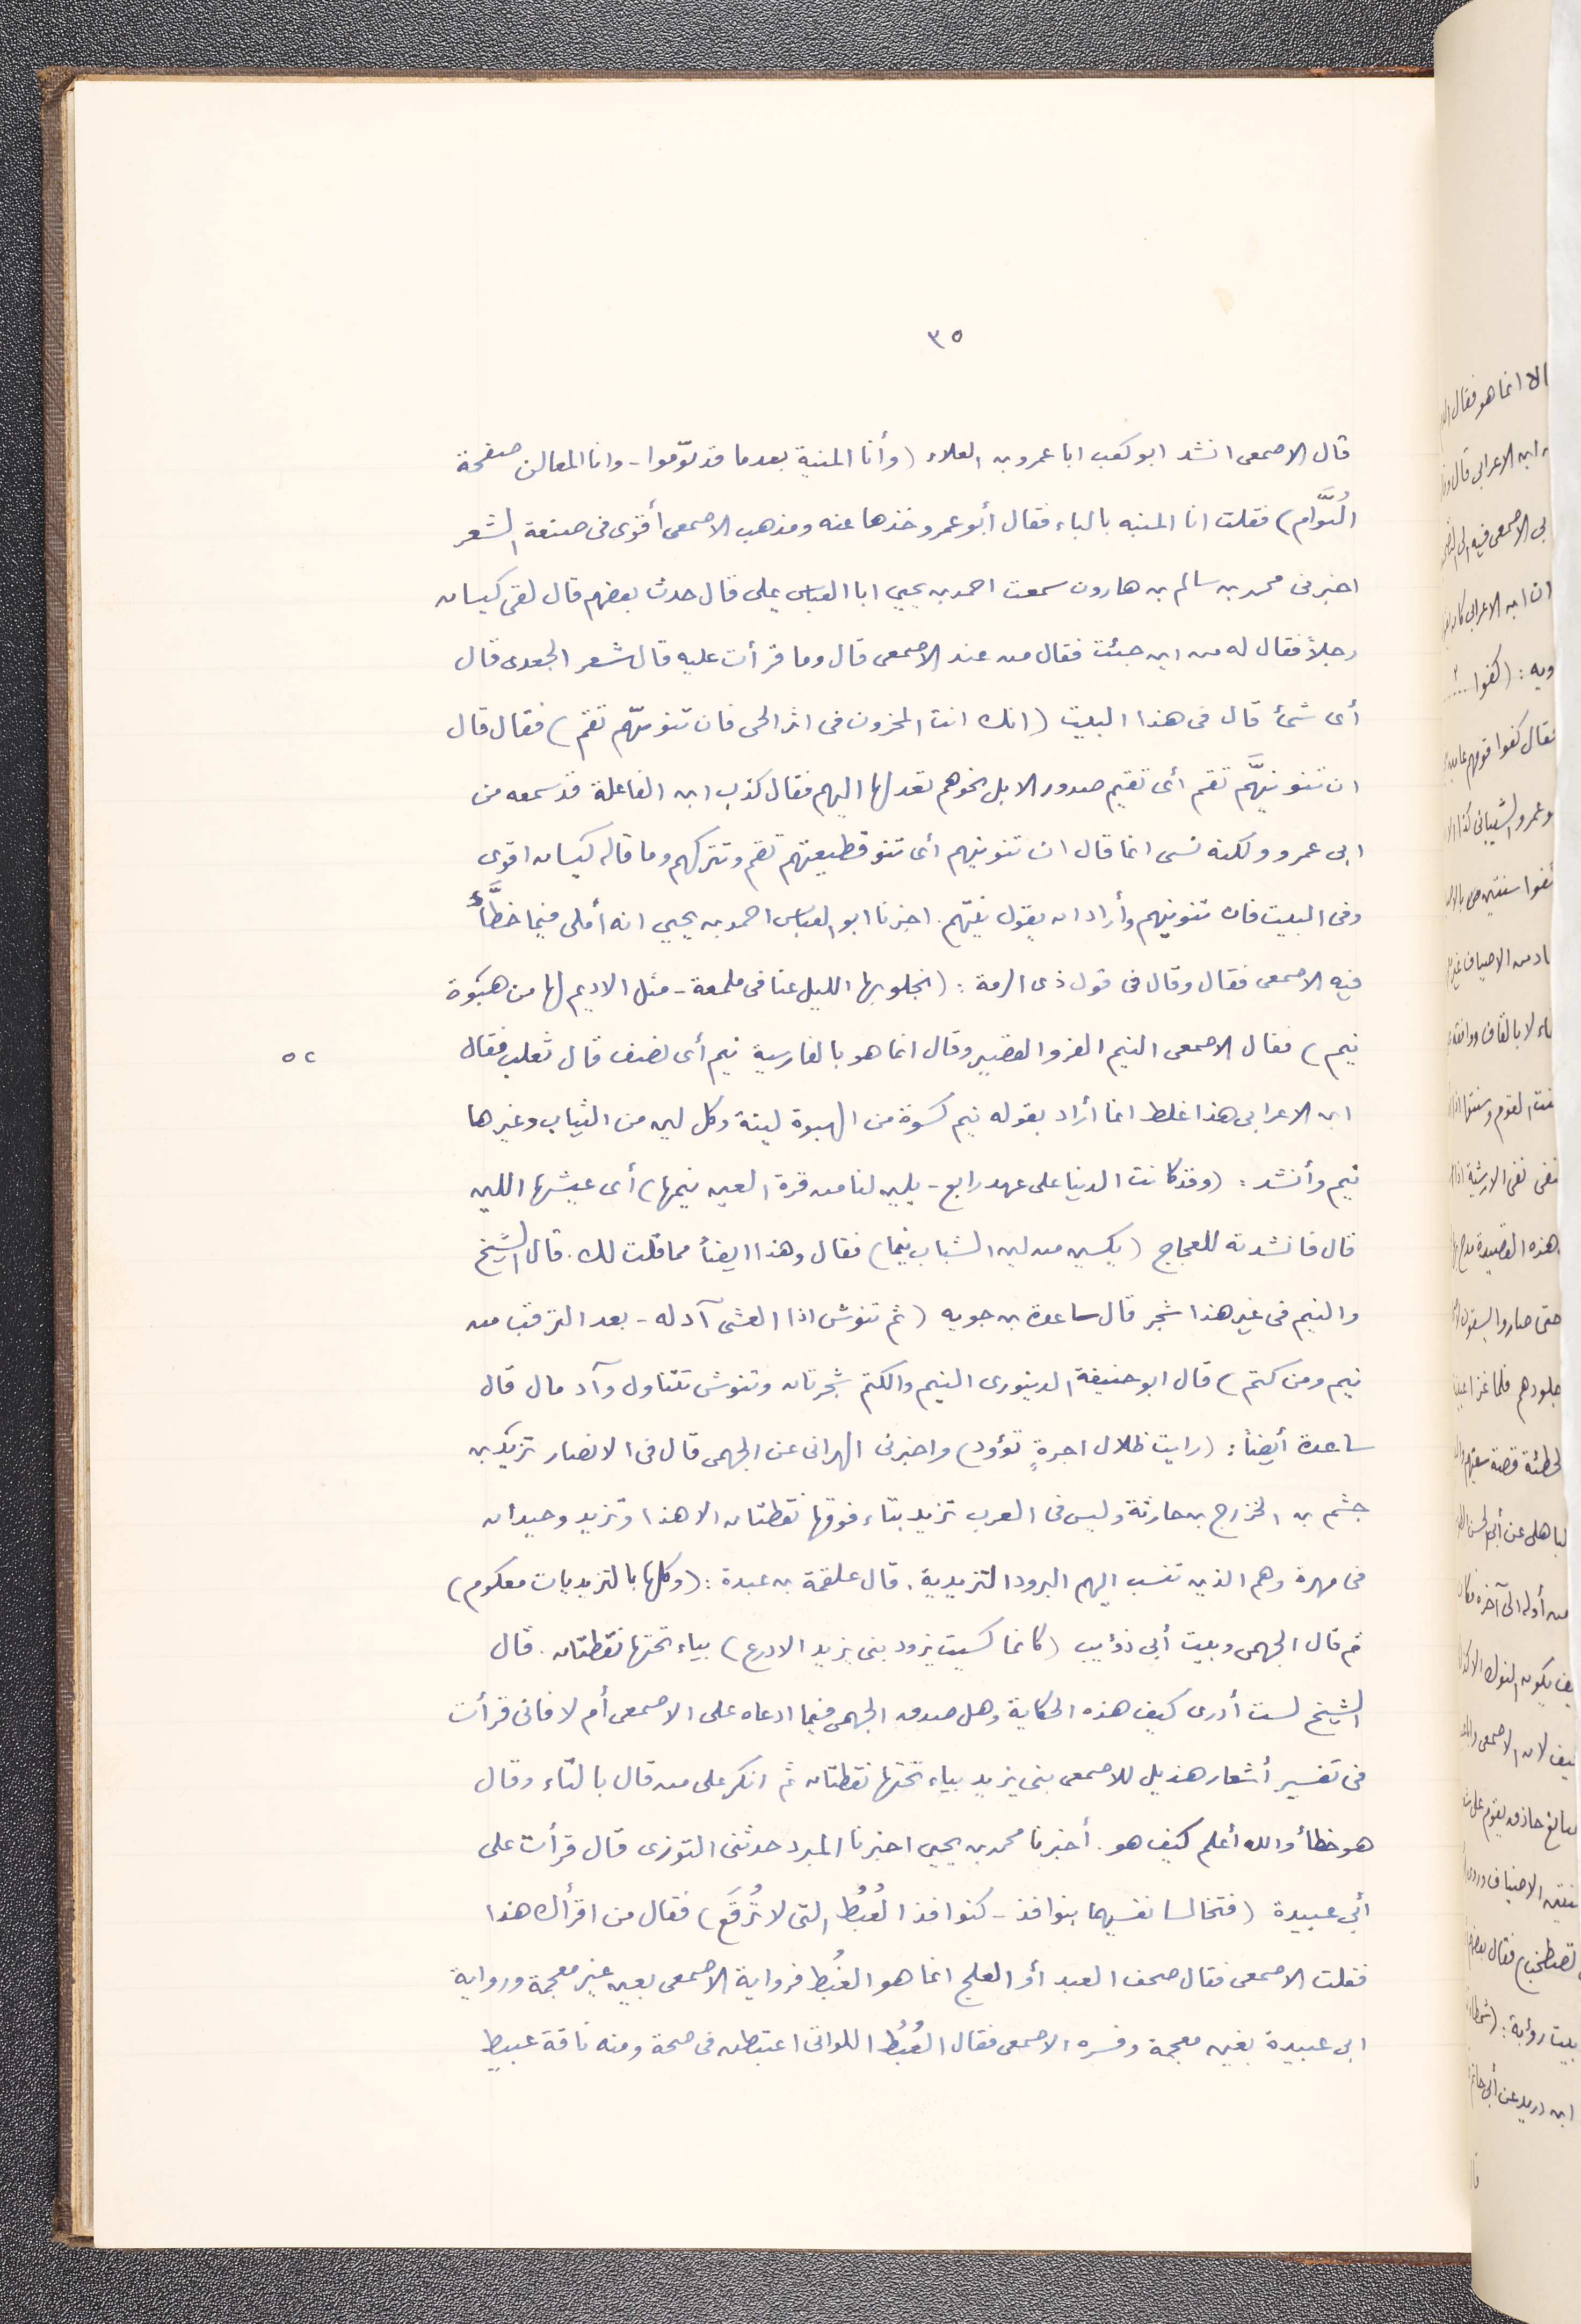 ٣٥
قال الاصمعى انشد ابو كعب ابا عمرو بن العلاء (وأنا المنية بعدما قد نوّموا - وانا المعالن صفحة
النُّوَّام) فقلت انا المنبه بالباء فقال أبو عمرو خذها عنه ومذهب الاصمعى أقوى فى صنعة الشعر
اخبرنى محمد بن سالم بن هارون سمعت احمد بن يحيى ابا العباس يملى قال حدث بعضهم قال لقى كيسان
رجلاً فقال له من اين جئت فقال من عند الاصمعى قال وما قرأت عليه قال شعر الجعدى قال
أى شئ قال فى هذا البيت (انك انت المحزون فى اثر الحى فان تنو نيّهم تقم) فقال قال
ان تنو نيَّهم تقم أى تقيم صدور الابل نحوهم تعدلها اليهم فقال كذب ابن الفاعلة قد سمعه من
ابى عمرو ولكنه نسى انما قال ان تنو نيهم أى تنو قطيعتهم تقم وتتركهم وما قاله كيسان اقوى
وفى البيت فان تنو نيهم وأراد ان يقول نيّتهم. اخبرنا ابو العباس احمد بن يحيى انه أملى فيما خطَّأ
فيه الاصمعى فقال وقال فى قول ذى الرمة: (انجلو بها الليل عنا فى ملمعة - مثل الاديم لها من هبوة
نيم) فقال الاصمعى النيم الفرو القصير وقال انما هو بالفارسية نيم أى نصف قال ثعلب فقال
٥٢
ابن الاعرابى هذا غلط انما أراد بقوله نيم كسوة من الهبوة لينة وكل لين من الثياب وغيرها
نيم وأنشد: (وقد كانت الدنيا على عهد رابع - يلين لنا من قرة العين نيمها) أى عيشها اللين
قال فانشدته للعجاج (يكسين من لين الشباب نيما) فقال وهذا ايضاً مما قلت لك. قال الشيخ
والنيم فى غير هذا شجر قال ساعدة بن جويه (ثم تنوش اذا العشى آد له - بعد الترقب من
نيم ومن كتم) قال ابو حنيفة الدينورى النيم والكتم شجرتان وتنوش تتناول وآد مال قال
ساعدة أيضاً: (رايت ظلال اجرةٍ تؤود) واخبرنى الهرانى عن الجهمى قال فى الانصار تزيد بن
جشم بن الخزرج بن حارثة وليس فى العرب تزيد بتاء فوقها نقطتان الا هذا وتزيد وحيدان
فى مهرة وهم الذين تنسب اليهم البرود التزيدية. قال علقمة بن عبدة: (وكلها بالتزيديات معكوم)
ثم قال الجهمى وبيت أبى ذؤيب (كانما كسيت برود بنى يزيد الادرع) بياء تحتها نقطتان. قال
الشيخ لست أدرى كيف هذه الحكاية وهل صدق الجهمى فيما ادعاه على الاصمعى أم لا فانى قرأت
فى تفسير أشعار هذيل للاصمعى بنى يزيد بياء تحتها نقطتان ثم انكر على من قال بالتاء وقال
هو خطأ والله أعلم كيف هو. أخبرنا محمد بن يحيى اخبرنا المبرد حدثنى التوزى قال قرأت على
أبى عبيدة (فتخالسا نفسيهما بنوافذ - كنوافذ العُبُطُ التى لا تُرقَع) فقال من اقرأك هذا
فقلت الاصمعى فقال صحف العبد أو العلج انما هو الغُبط فرواية الاصمعى بعين غير معجمة ورواية
ابى عبيدة بغين معجمة وفسره الاصمعى فقال العُبُطُ اللواتى اعتبطن فى صحة ومنه ناقة عبيط